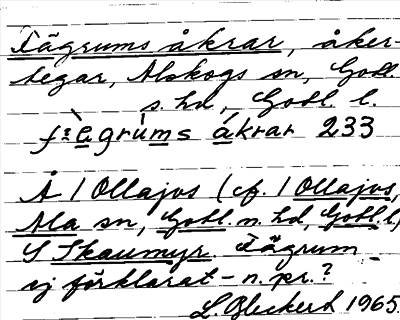 Fägrums åkrar, åker-
tegar, Alskogs sn, Gotl.
s. hd, Gotl. l.
grums åkrar 233
Å / Ollajvs (cf. / Ollajvs,
Ala sn, Gotl. n. hd, Gotl. l.)
S Skaumyr. Fägrum
ej förklarat – n. pr.?
L. Bleckert 1965.